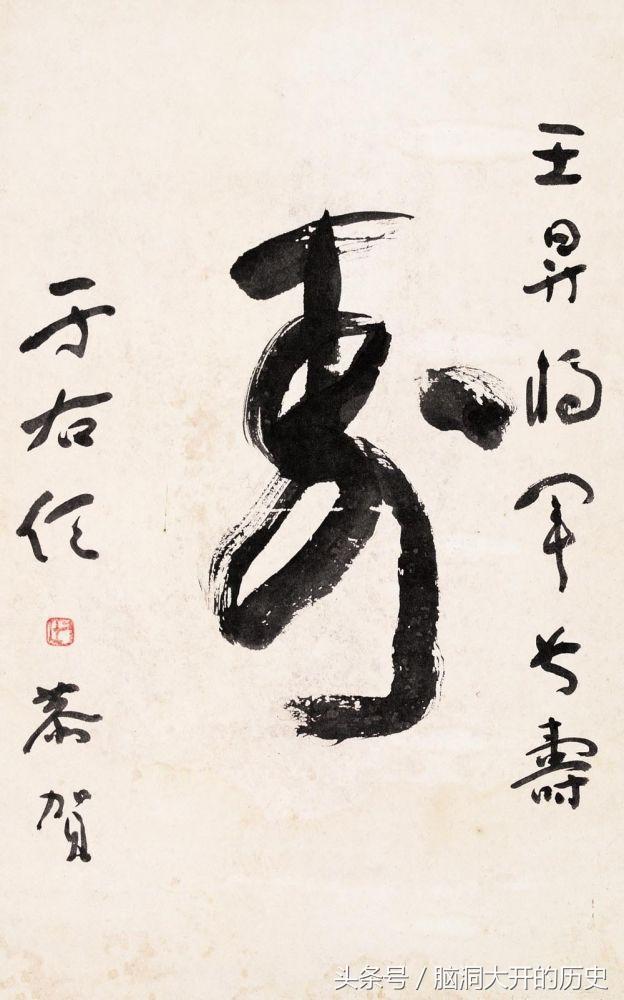 王昇將軍長壽
壽
于右任
恭賀
头条号/脑洞大开的历史